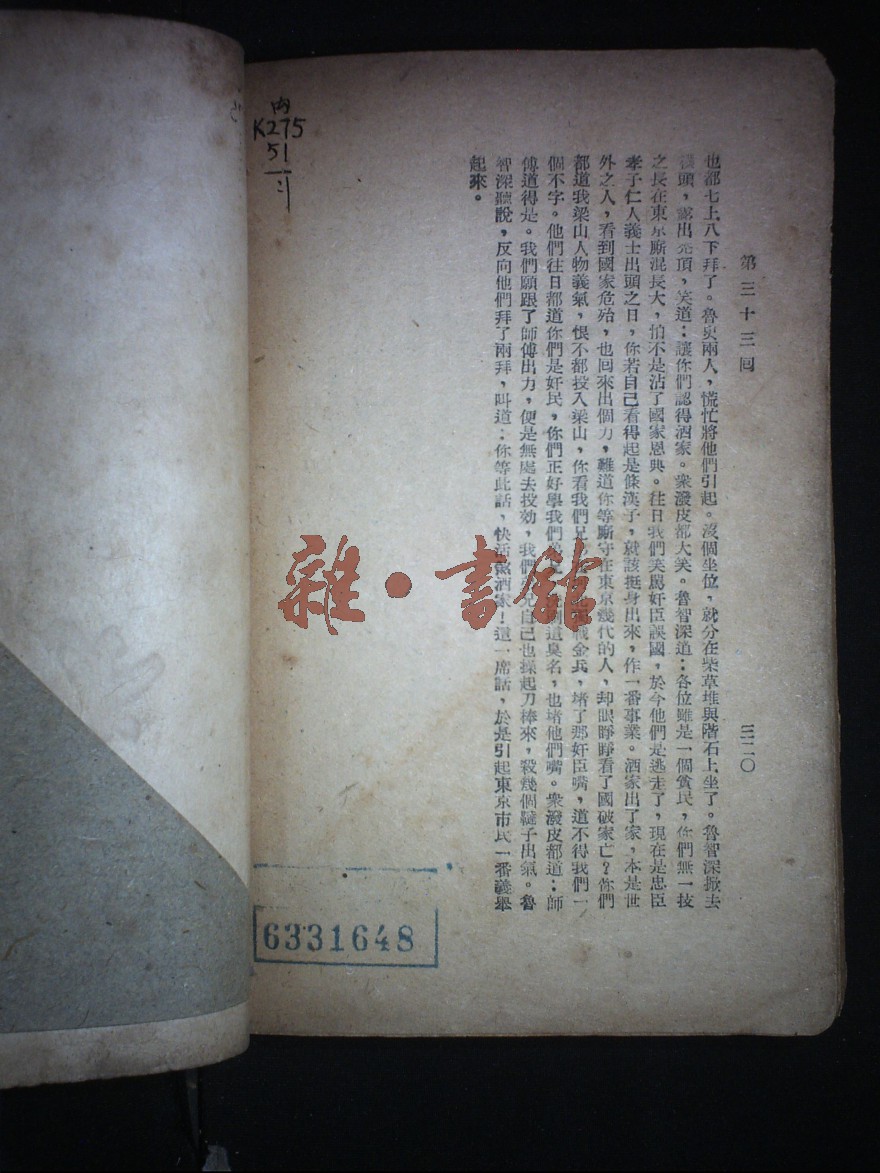 第三十三回
三二〇
也都七上八下拜了。魯史兩人，慌忙將他們引起。沒個坐位，就分在柴草堆與階石上坐了。魯智深掀去
頭，露出禿頂，笑道：讓你們認得洒家。衆潑皮都大笑。魯智深道：各位雖是一個貧民，你們無一技
之長在東京廝混長大，怕不是沾了國家恩典。往日我們笑罵奸臣誤國，於今他們是逃走了，現在是忠臣
孝子仁人義士出頭之日，你若自己看得起是條漢子，就該挺身出來，作一番事業。洒家出了家，本是世
外之人，看到國家危殆，也回來出個力，難道你等廝守在東京幾代的人，却眼睜睜看了國破家亡？你們
都道我梁山人物義氣，恨不都投入梁山，你看我們兄戰金兵，堵了那奸臣嘴，道不得我們一
個不字。他們往日都道你們是奸民，你們正好學我們這臭名，也堵他們嘴。衆潑皮都道：師
傅道得是。我們願跟了師傅出力，便是無處去投効，我們自己也操起刀棒來，殺幾個韃子出氣。魯
智深聽說，反向他們拜了兩拜，叫道：你等此話，快活煞洒家！這一席話，於是引起東京市民一番義舉
起來。
K275
51
6331648
雜·書館